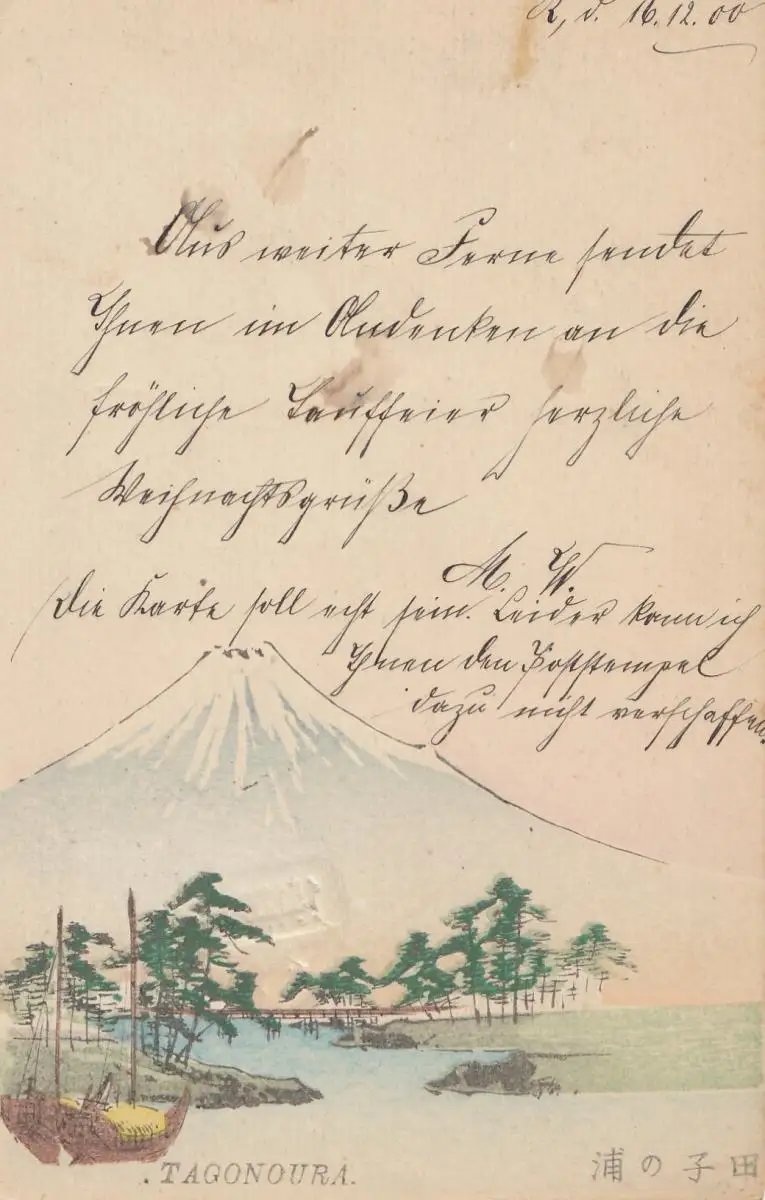 R, d. 16.12.00
Aus weiter Ferne sendet
Ihnen im Andenken an die
fröhliche Tauffeier herzliche
Weihnachtsgrüße
M. W.
Die Karte soll echt sein. Leider kann ich
Ihnen den Poststempel
dazu nicht verschaffen.
TAGONOURA.
浦の子田